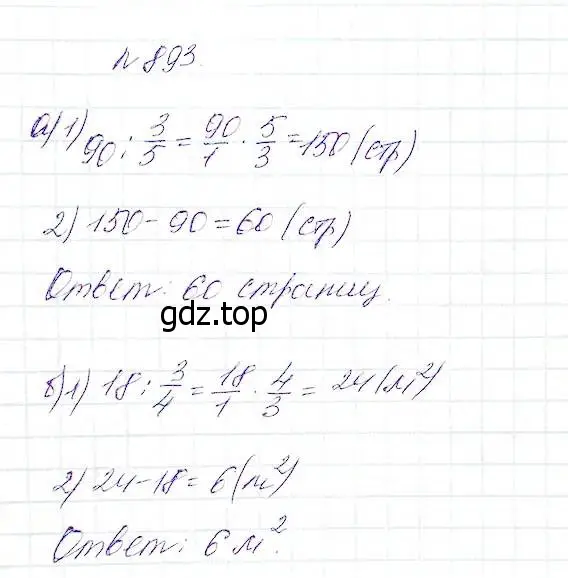 № 893.
а) 1) 90 : 3/5 = 90/1 · 5/3 = 150 (стр)
2) 150 - 90 = 60 (стр)
Ответ: 60 страниц.
gdz.top
б) 1) 18 : 3/4 = 18/1 · 4/3 = 24 (м²)
2) 24 - 18 = 6 (м²)
Ответ: 6 м².